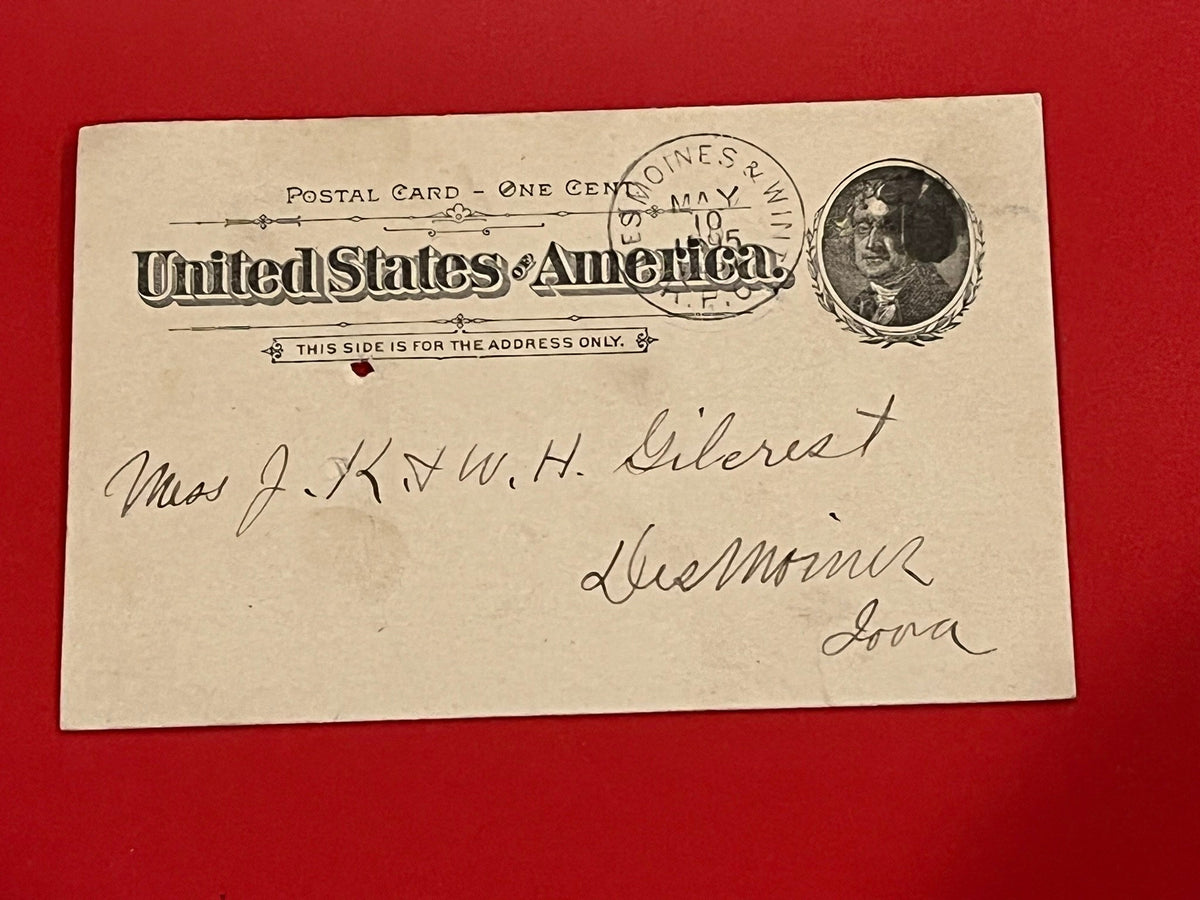 POSTAL CARD – ONE CENT
United States of America.
THIS SIDE IS FOR THE ADDRESS ONLY.
DES MOINES & WIN
MAY
10
1895
R.P.O.
Mess J. K. & W. H. Gilcrest
Des Moines
Iowa